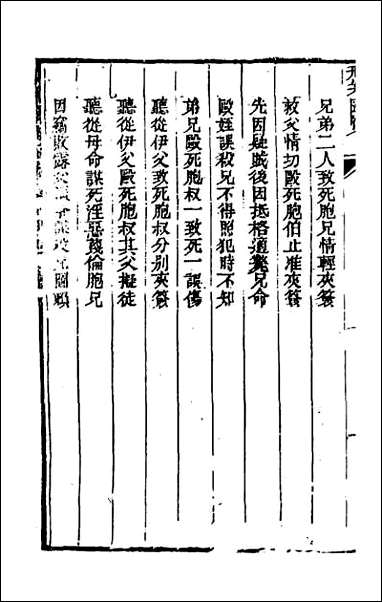 兄弟二人致死胞兄情輕夾簽
救父情切毆死胞伯止准夾簽
先因疑賊後因抵格適斃兄命
毆姪誤殺兄不得照犯時不知
弟兄毆死胞叔一致死一誤傷
聽從伊父致死胞叔分别夾簽
聽從伊父毆死胞叔其父擬徒
聽從母命謀死淫惡蔑倫胞兄
因竊敗露